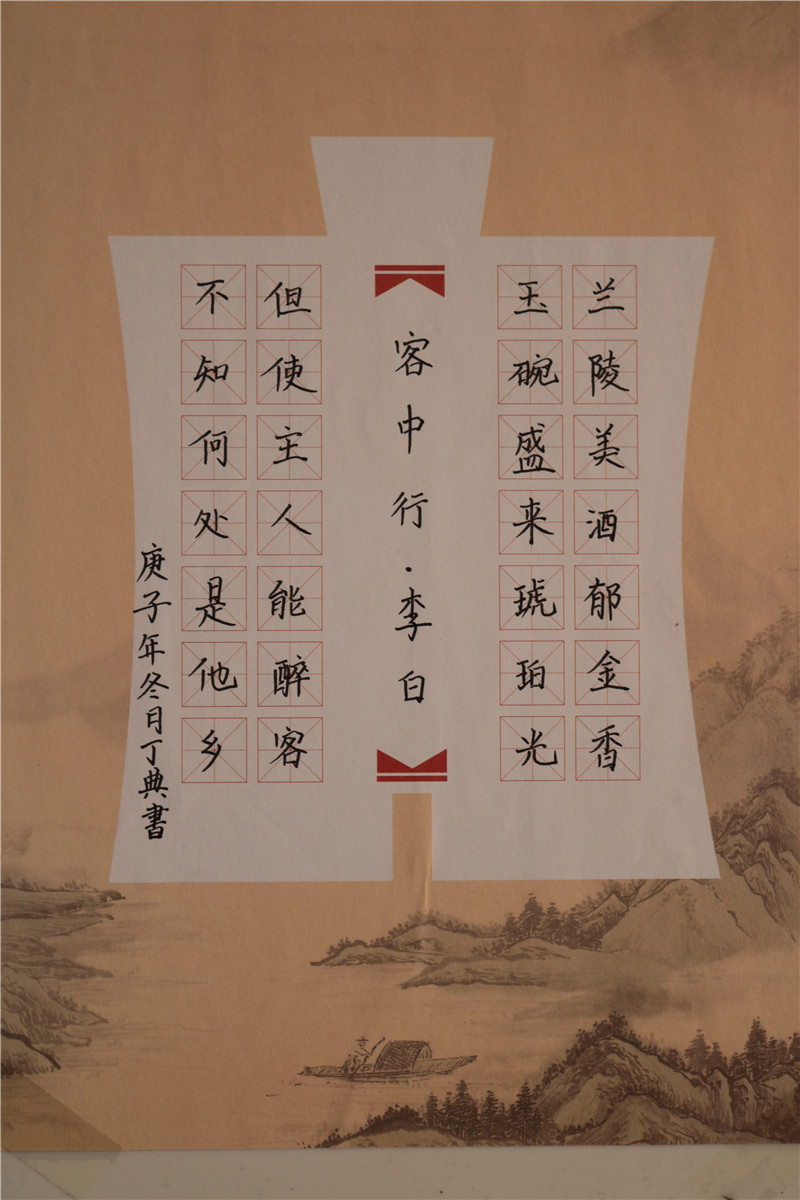 兰陵美酒郁金香
玉碗盛来琥珀光
客中行·李白
但使主人能醉客
不知何处是他乡
庚子年冬日丁典書